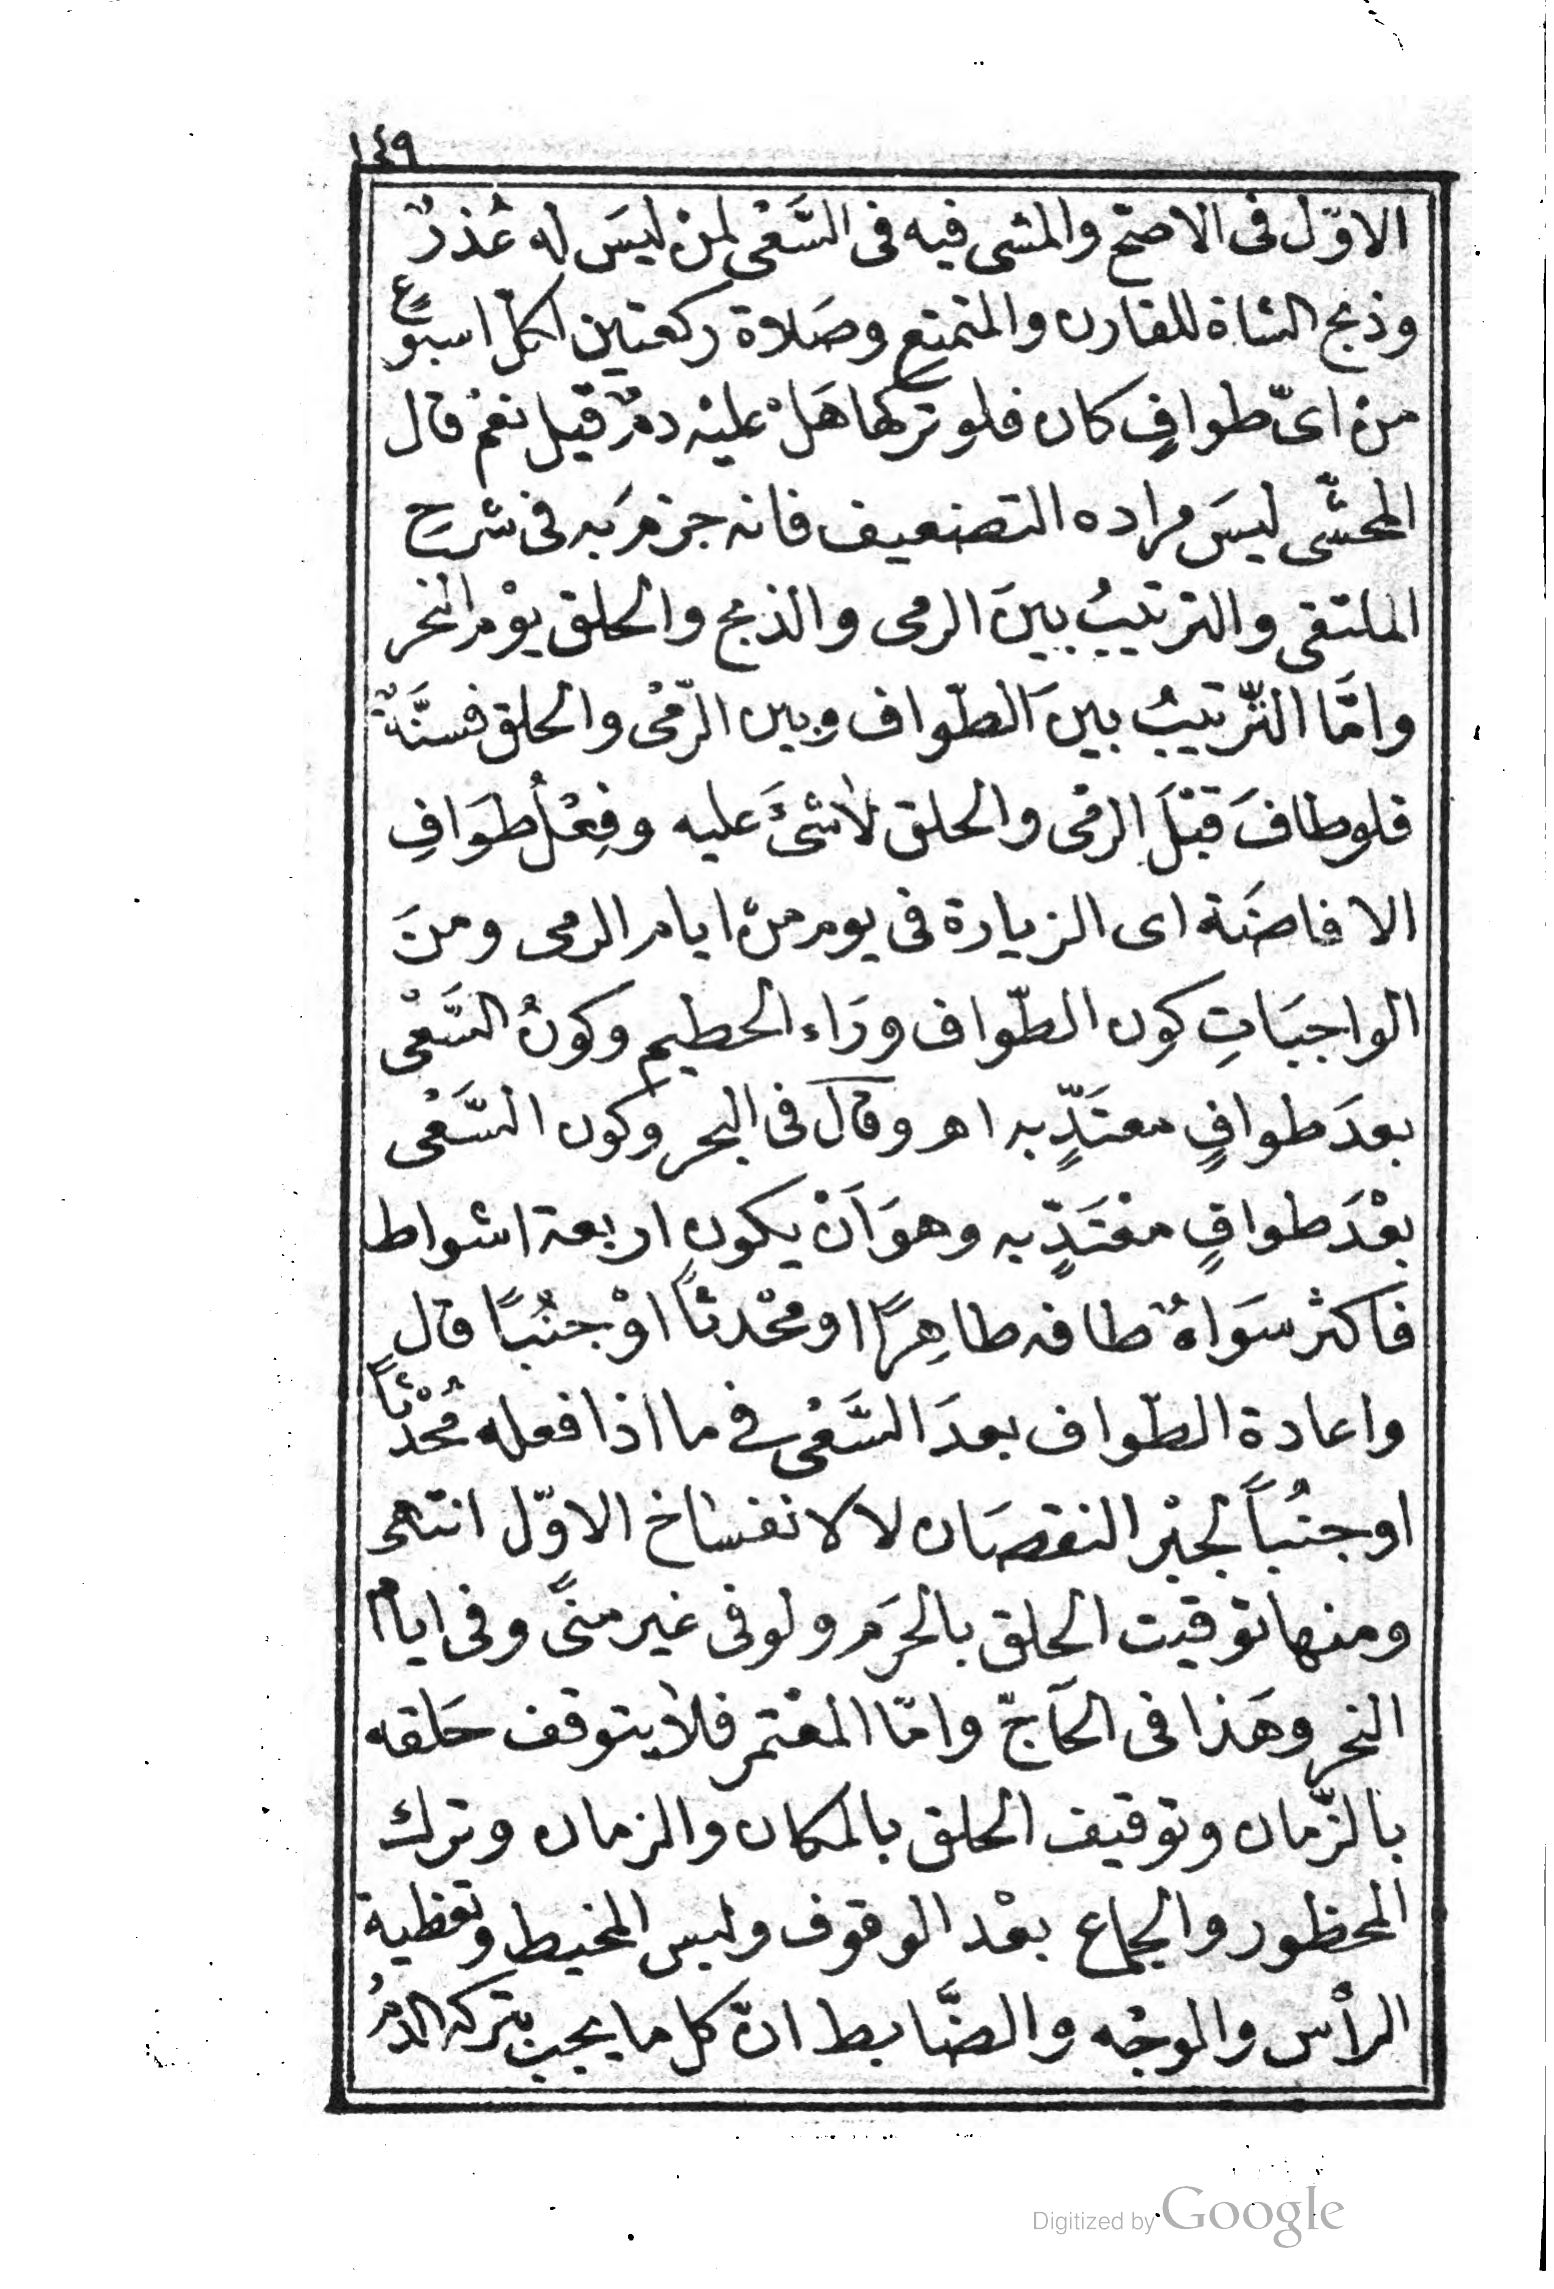 ١٤٩
الاوّل فى الاصحّ والمشى فيه فى السَّعْى لمنْ ليسَ له عُذرٌ
وذبح الشاة للقارن والمتمتع وصَلاة ركعتين لكلّ اسبوعٍ
منْ اىّ طوافٍ كان فلو تركها هَلْ عليْه دمٌ قيل نعمْ قال
المحشّى ليسَ مراده التضعيف فانه جزم به فى شرح
الملتقى والترتيبُ بينَ الرمى والذبح والحلق يوْم النحر
وامَّا التّرتيبُ بينَ الطّواف وبين الرّمْى والحلق فسنَّةٌ
فلو طافَ قبْلَ الرمْى والحلق لاشىْءَ عليه وفِعْلُ طوَافِ
الافاضَة اى الزيارة فى يوم منْ ايام الرمى ومنَ
الواجبَاتِ كون الطّواف ورَاء الحطيم وكونُ السَّعْى
بعدَ طوافٍ معتَدٍّ به اهـ وقال فى البحر وكون السَّعْى
بعْدَ طوافٍ معْتَدٍّ به وهوَ اَنْ يكون اربعة اشواط
فاكثر سوَاءٌ طافه طاهِرًا او محْدثاً اوْ جنُبًا قال
واعادة الطّواف بعدَ السَّعْى فى ما اذا فعله مُحْدثاً
او جنُباً لجبْر النقصَان لا لانفساخ الاوّل انتهى
ومنها توقيت الحلق بالحرَم ولو فى غير منىً وفى ايام
النحر وهَذا فى الحَاجّ وامّا المعْتمر فلا يتوقف حَلقه
بالزّمان وتوقيف الحلق بالمكان والزمان وترك
المحظور والجماع بعْد الوقوف ولبس المخيط وتغطية
الرأس والوجْه والضَّابط انّ كل ما يجب بتركه الدمُ
Digitized by Google